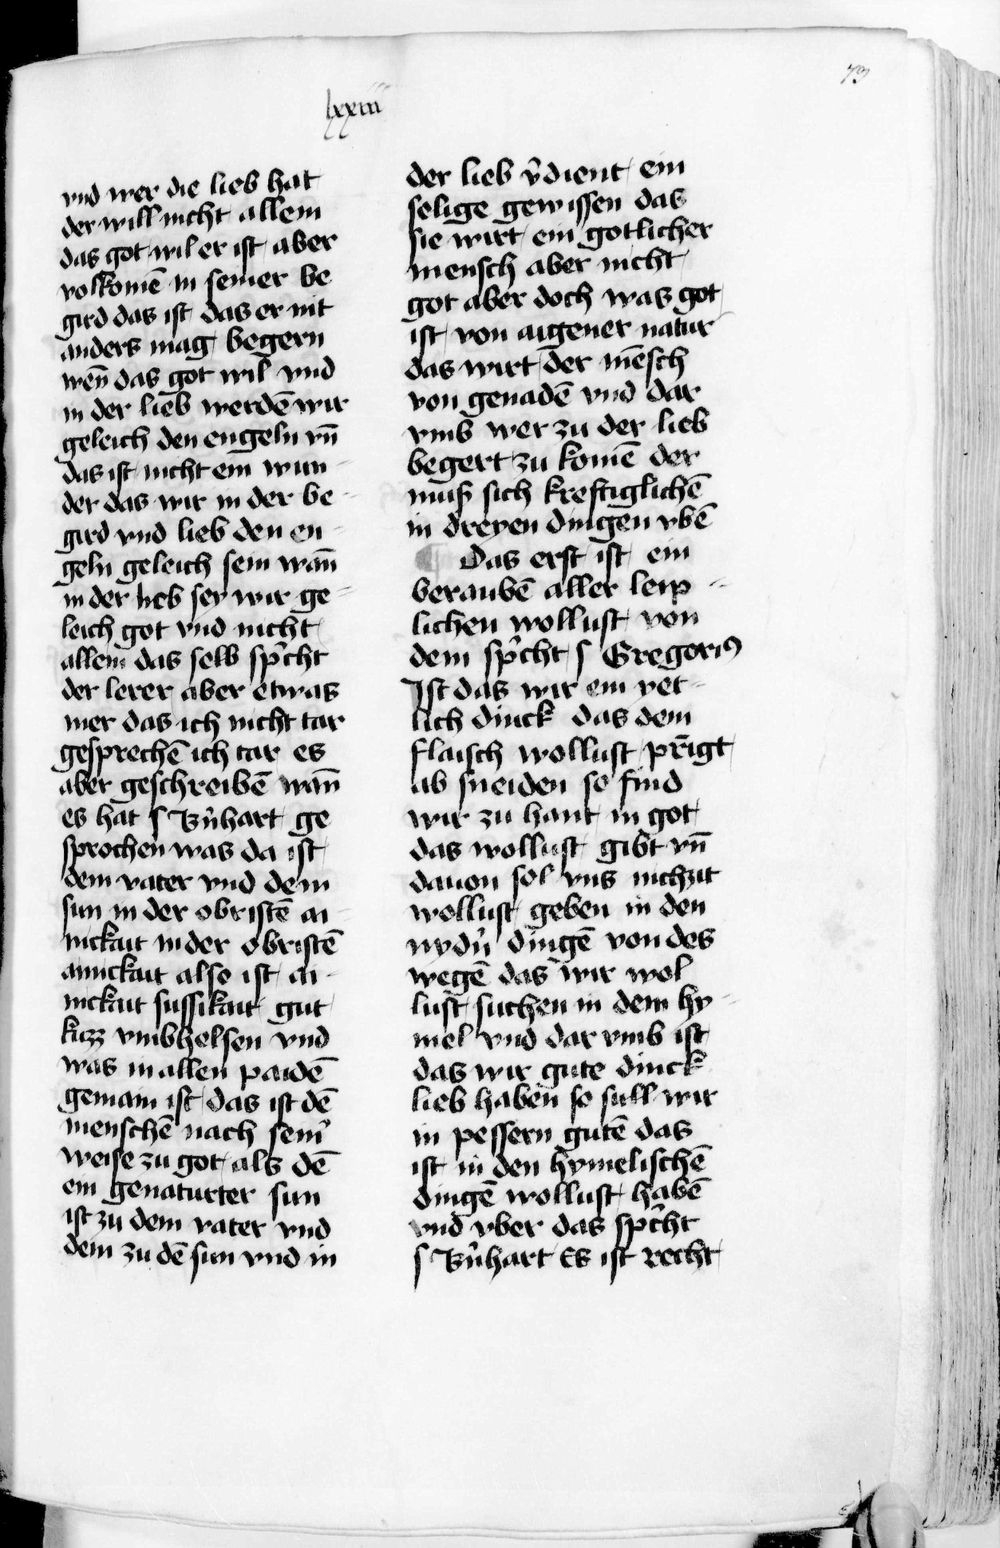 73
lxxiii
vnd wer die lieb hat
der will nicht allein
das got wil er ist aber
volkomē in seiner be
gird das ist das er nit
anders mag begern
wēn das got wil vnd
in der lieb werdē wir
geleich den engeln vn̄
das ist nicht ein wun-
der das wir in der be-
gird vnd lieb den en-
geln geleich sein wan̄
in der lieb sey wir ge-
leich got vnd nicht
allein das selb sp̄cht
der lerer aber etwas
mer das ich nicht tar
gesprechē ich tar es
aber geschreibē wan̄
es hat s Bn̄hart ge
sprochen was da ist
dem vater vnd dem
sun in der obristē ai-
nickait in der obristē
ainickait also ist ai-
nickait sussikait gut
kuzz vmbhelsen vnd
was in allen paidē
gemain ist das ist dē
menschē nach sein̄
weise zu got als dē
ein genaturter sun
ist zu dem vater vnd
dem zu dē sun vnd in
der lieb v̄dient ein
selige gewissen das
sie wirt ein gotlicher
mensch aber nicht
got aber doch was got
ist von aigener natur
das wirt der mēsch
von genadē vnd dar
vmb wer zu der lieb
begert zu komē der
muß sich kreftiglichē
in dreyen dingen vbē
¶ Das erst ist ein
beraubē aller leip-
lichen wollust von
dem sp̄cht s Gregoriꝰ
Ist das wir ein yet-
lich dinck das dem
flaisch wollust pr̄igt
ab sneiden so find
wir zu hant in got
das wollust gibt vn̄
dauon sol vns nichzit
wollust geben in den
nydn̄ dingē von des
wegē das wir wol
lust suchen in dem hy-
mel vnd dar vmb ist
das wir gute dinck
lieb haben so sull wir
in pessern gutē das
ist in den hymelischē
dingē wollust habē
vnd vber das sp̄cht
s Bn̄hart Es ist recht